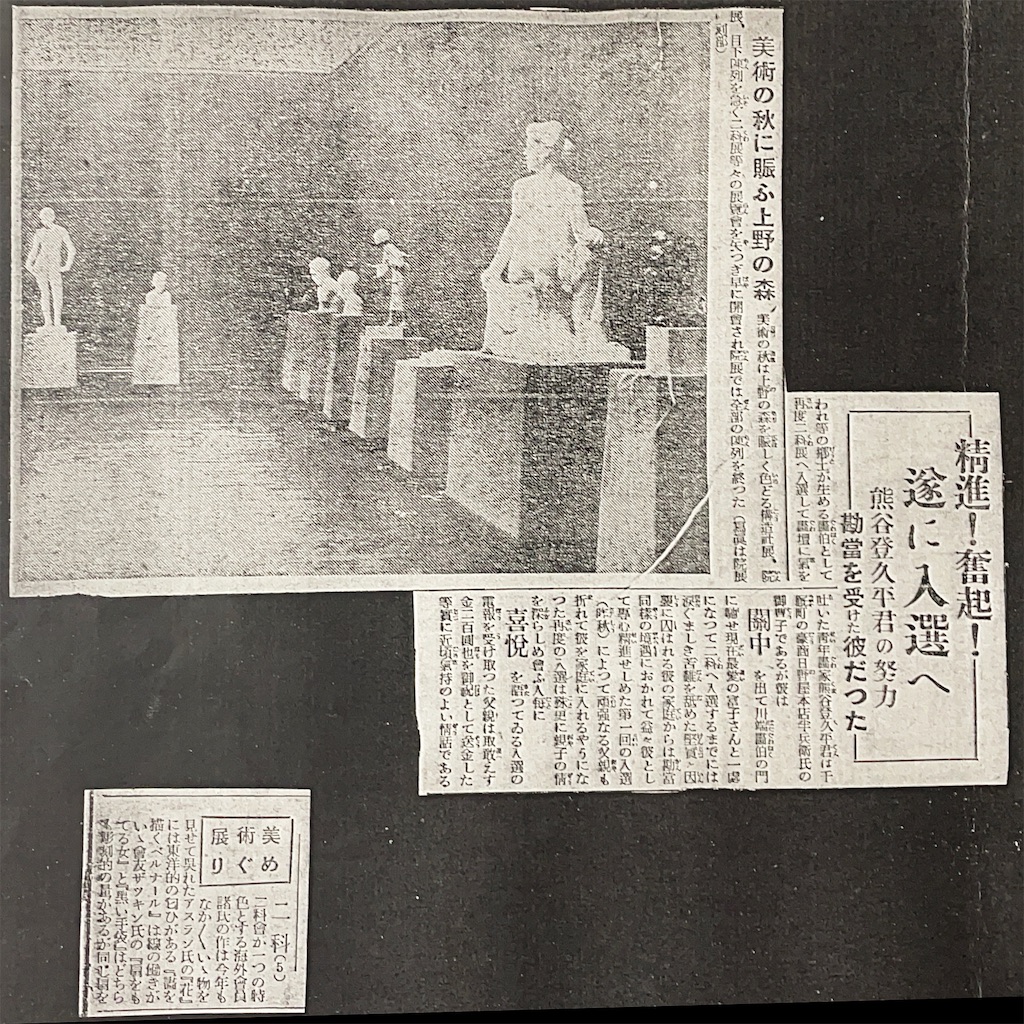 美術の秋に賑ふ上野の森
美術の秋は上野の森を賑しく色どる構造社展、院
展、目下陳列を急ぐ二科展等々の展覽會を矢つぎ早に開會され院展では全部の陳列を終つた(寫眞は院展
彫刻部)
精進!奮起!
遂に入選へ
熊谷登久平君の努力
勘當を受けた彼だつた
われ等の郷土が生める畫伯として
再度二科展へ入選して畫壇に氣を
吐いた靑年畫家熊谷登久平君は千
厩町の豪商日野屋本店半兵衞氏の
御曹子であるが彼は
關中
を出て川端畫伯の門
に馳せ現在最愛の富子さんと一處
になつて二科へ入選するまでには
涙ぐましき苦難を舐めた堅實と因
襲に囚はれる彼の家庭からは勘當
同樣の境遇におかれて益々彼とし
て專心精進せしめた第一回の入選
(昨秋)によつて頑強なる父親も
折れて彼を家庭に入れるやうにな
つた再度の入選は殊更に親子の情
を深らしめ會ふ人每に
喜悅
を語つてゐる入選の
電報を受け取つた父親は取敢たず
金二百圓也を御祝として送金した
等實に近頃氣持のよい情話である
美術展めぐり
二科(5)
二科會が一つの特
色とする海外會員
諸氏の作は今年も
なか〱いゝ物を
見せて呉れたアスラン氏の『花』
には東洋的の匂ひがある『壺を
描くベルナール』は線の働きが
いゝ會友ザツキン氏の『扇をも
てる女』と『黑い手袋』はどちら
も彫刻的の量があるが同じ扇を